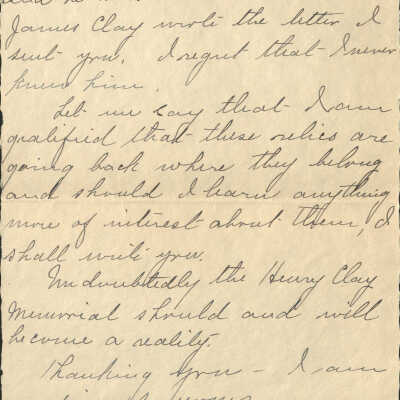 James Clay wrote the letter I
sent you. I regret that I never
knew him.
Let me say that I am
gratified that these relics are
going back where they belong
and should I learn anything
more of interest about them, I
shall write you.
Undoubtedly the Henry Clay
Memorial should and will
become a reality.
Thanking you - I am